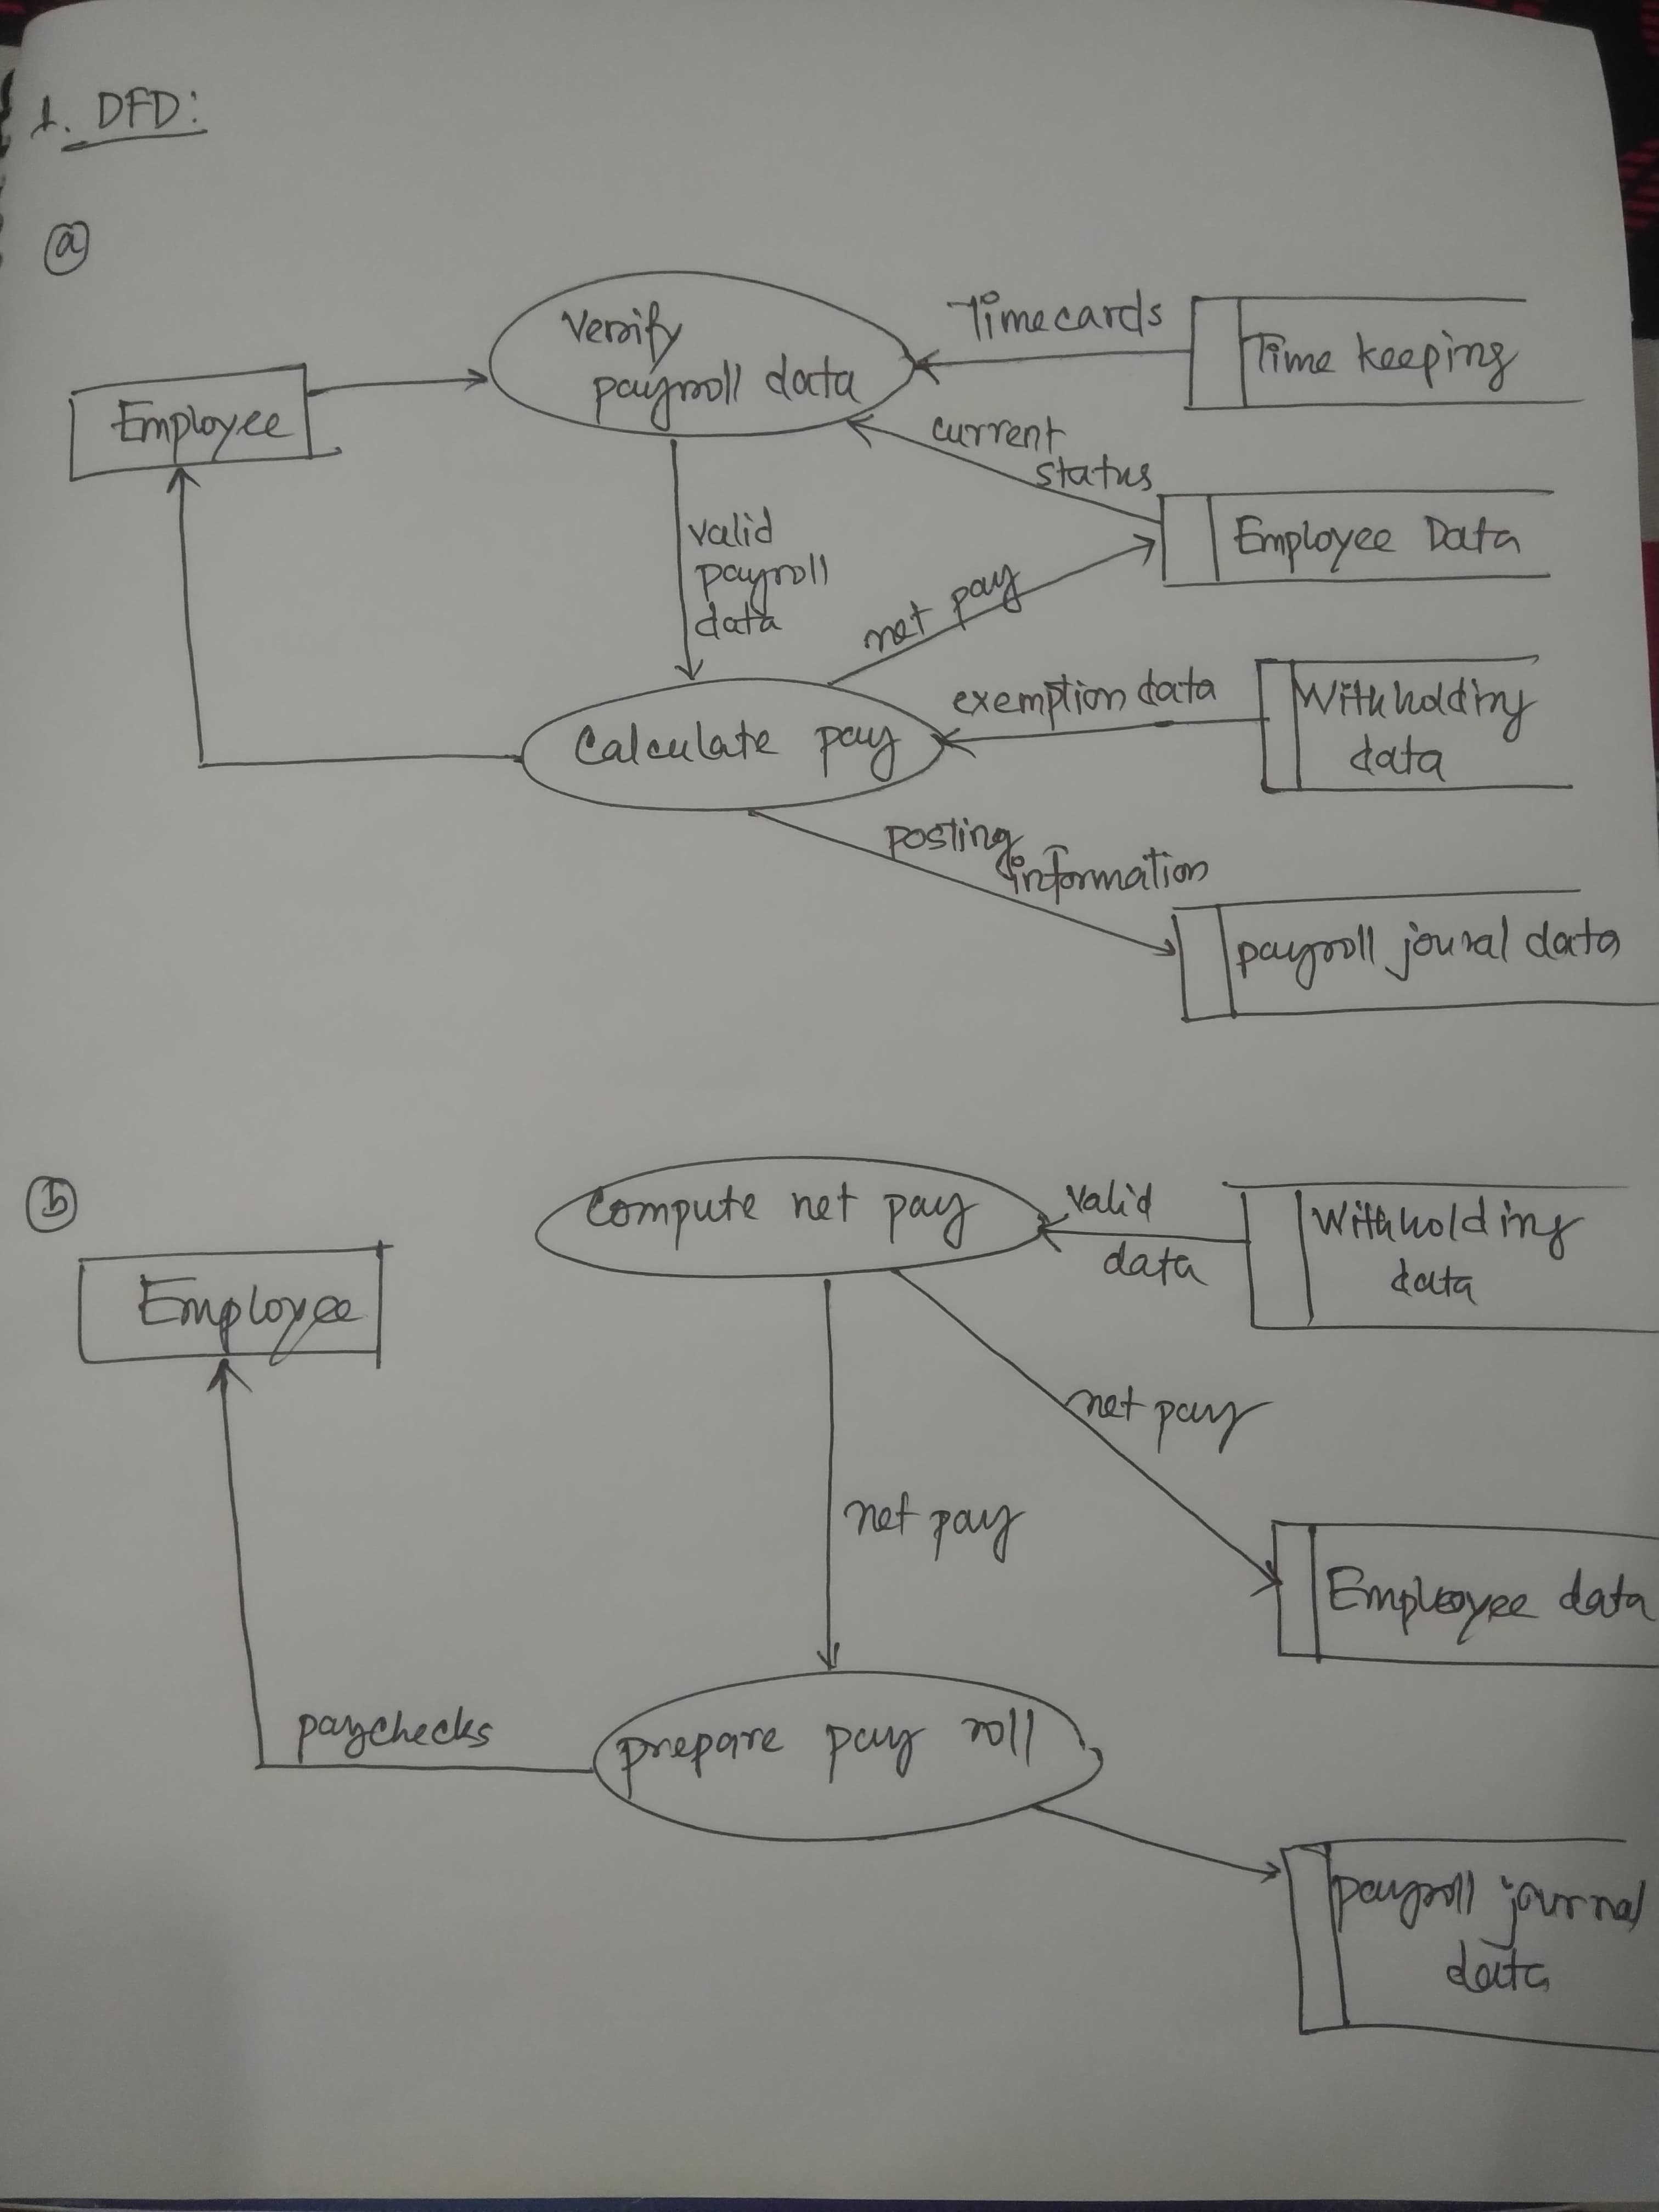 1. DFD:
(a)
Verify
payroll data
Timecards
Time keeping
Employee
current
status
Employee Data
valid
payroll
data
net pay
exemption data
Withholding
data
Calculate pay
posting
information
payroll joural data
(b)
Compute net pay
valid
data
Withholding
data
Employee
net pay
net pay
Employee data
paychecks
prepare pay roll
payroll journal
data